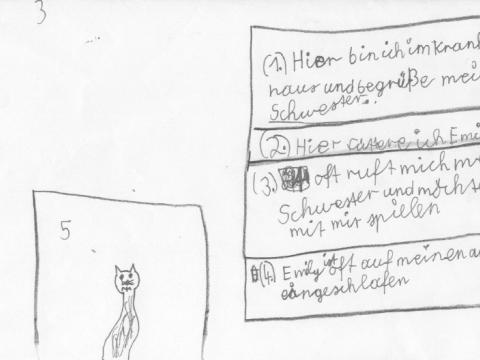 3
(1.) Hier bin ich im Kran
haus und begrüße mei
Schwester.
(2.) Hier ich Emi
(3.) oft ruft mich m
Schwester und möcht
mit mir spielen
(4.) Emily ist oft auf meinen a
eingeschlafen
5